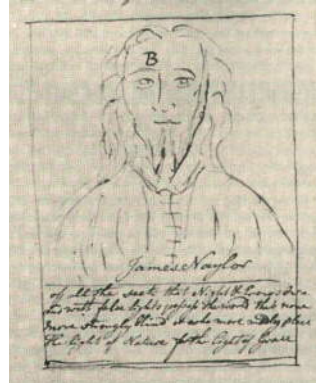 B
James Naylor
of all the sects that Night & Errors
with false lights the world this none
more strongly blind who more place
the light of Nature for the light of Grace